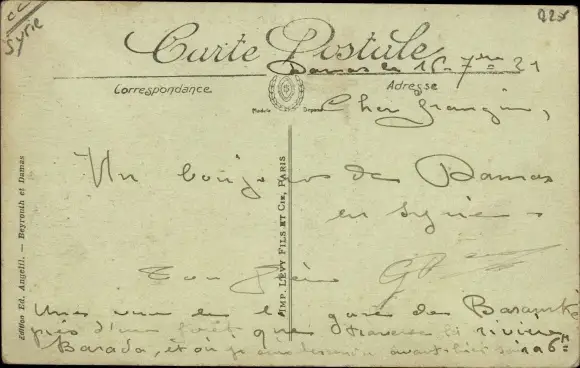 Syrie
22x
Carte Postale
Damas le 16-7bre 21
Correspondance
Adresse
Modèle Déposé
Cher frangin,
Un bonjour de Damas
en Syrie.
Ton frère
Une vue de la gare de Baramké
près d'une forêt que traverse la rivière
Barada, et où je suis descendu avant hier soir à 6h
Edition Ed. Angelil. — Beyrouth et Damas
IMP. LEVY FILS ET CIE, PARIS